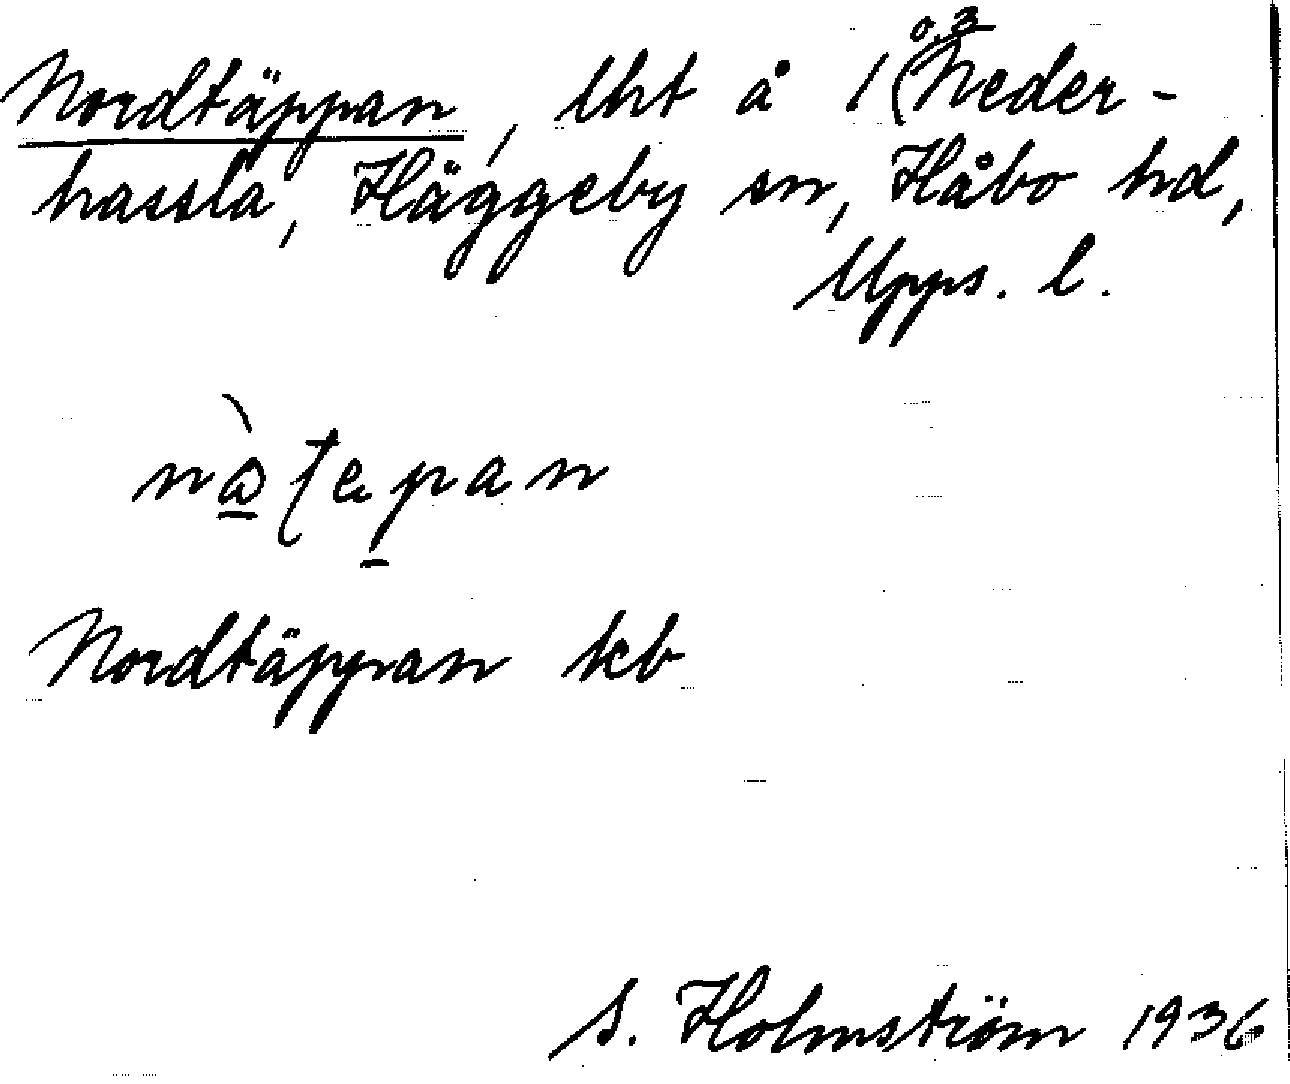 Nordtäppan, lht å 1 (o. 3 Neder-
hassla, Häggeby sn, Håbo hd,
Upps. l.
Nordtäppan kb
S. Holmström 1936